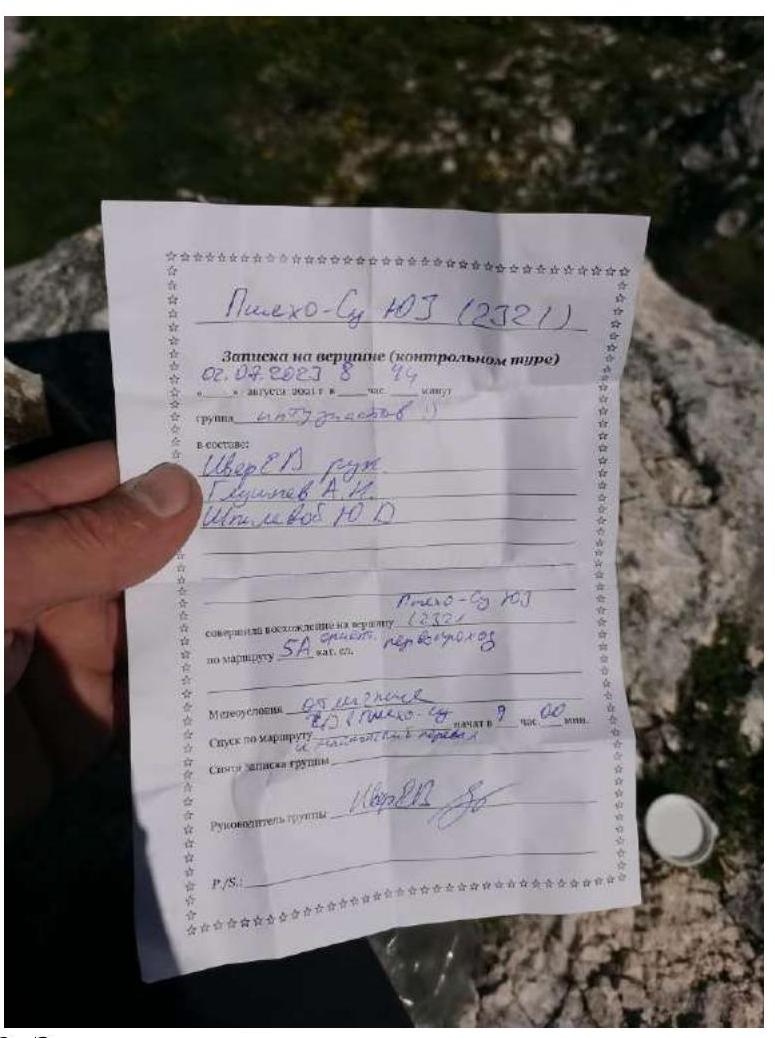 Пшехо-Су ЮЗ (2321)
Записка на вершине (контрольном туре)
02.07.2023 8 44
« » августа 2021 г. в час. минут
группа интузиастов :)
в составе:
Ивер ЕВ рук.
А.И.
Шпилевой Ю D
Пшехо-Су ЮЗ
совершила восхождение на вершину (2321
по маршруту 5А ориент. кат. сл. первопроход
Метеоусловия отличные
Спуск по маршруту Пшехо-Су начат в 9 час. 00 мин.
и перевал
Снята записка группы
Руководитель группы Ивер ЕВ
P./S.: